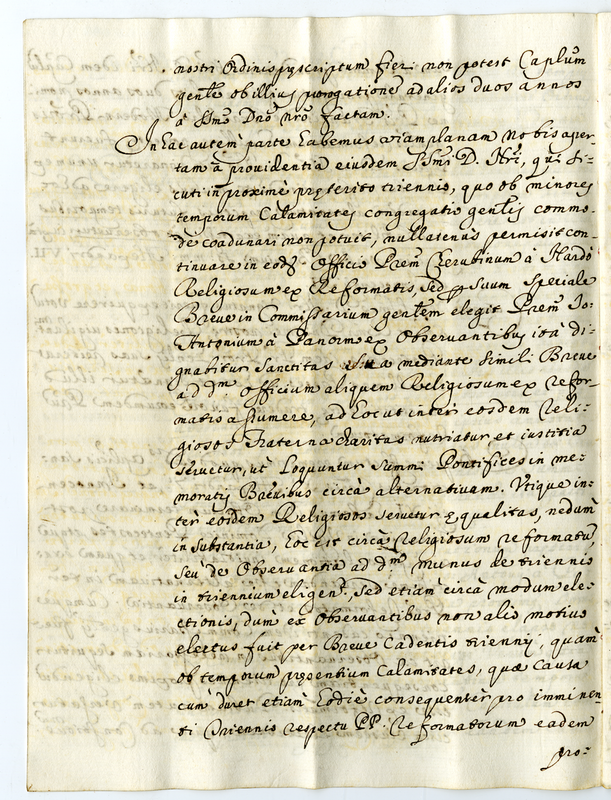 nostri Ordinis pręscriptum fieri non potest Caplum
genłe ob illius prorogatione ad alios duos annos
à Ssmo Dno nro factam.
In hac autem parte habemus viam planam nobis aper-
tam à providentia eiusdem Ssmi D. Nri, qui si-
cuti in proximè pręterito triennio, quo ob minores
temporum Calamitates congregatio genłis commo-
dè coadunari non potuit, nullatenùs permisit con-
tinuare in eodē Officio Prem Cherubinum à Nardò
Religiosum ex Reformatis, sed p suum speciale
Breve in Commissarium genłem elegit Prem Io:
Antonium à Panormo ex Observantibus ità di-
gnabitur Sanctitas sua mediante simili Breve
ad dm officium aliquem Religiosum ex refor-
matis assumere, ad hoc ut inter eosdem Reli-
giosos fraterna charitas nutriatur, et iustitia
servetur, ut loquuntur summi Pontifices in me-
moratis Brevibus circà alternativam. Vtique in-
tèr eosdem Religiosos servetur ęqualitas, nedum
in substantia, hoc est circà Religiosum reformatū,
seu de Observantia ad dm munus de triennio
in triennium eligend., sed etiam circà modum ele-
ctionis, dum ex Observantibus non aliis motivis
electus fuit per Breve Cadentis triennij, quàm
ob temporum pręsentium Calamitates, quæ causa
cùm duret etiam hodiè consequentèr pro imminen
ti Triennio respectu PP: Reformatorum eadem
pro=